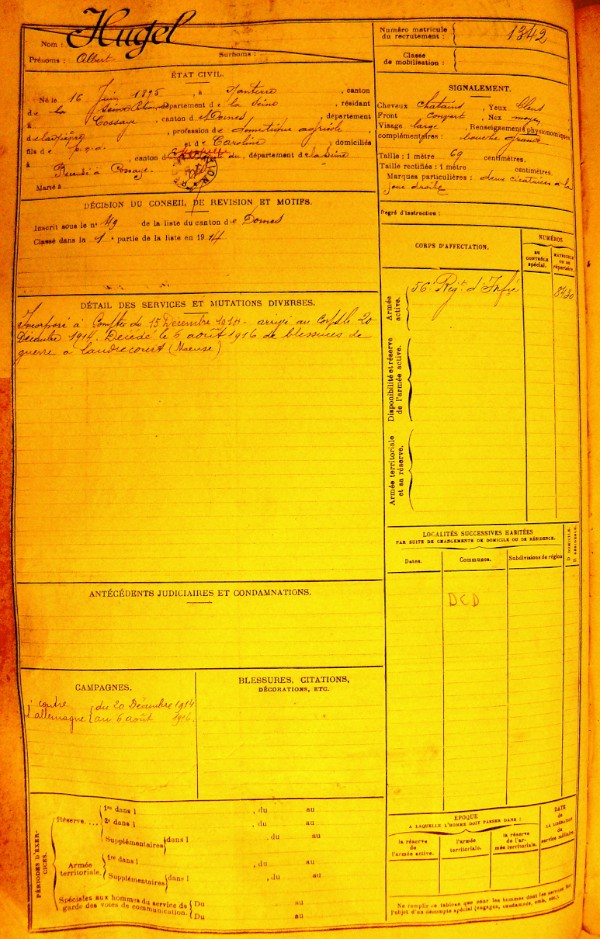 Nom : Hugel
Prénoms : Albert Surnoms :
Numéro matricule du recrutement : 1342
Classe de mobilisation :
ÉTAT CIVIL.
Né le 16 Juin 1895, à Nanterre, canton
de la Seine, département de la Seine, résidant
à Cossaye, canton de Dornes, département
de la Nièvre, profession de domestique agricole
fils de et de Caroline, domiciliés
à Cossaye, canton de, département de la Seine
Marié à
SIGNALEMENT.
Cheveux chatains Yeux bleus
Front Nez moyen
Visage large Renseignements physionomiques
complémentaires : bouche grande
Taille : 1 mètre 69 centimètres.
Taille rectifiée : 1 mètre centimètres.
Marques particulières : deux cicatrices à la
joue droite
DÉCISION DU CONSEIL DE RÉVISION ET MOTIFS.
Inscrit sous le n° 49 de la liste du canton de Dornes
Classé dans la 1e partie de la liste en 1914
Degré d'instruction :
CORPS D'AFFECTATION.
NUMÉROS
AU CONTRÔLE spécial.
MATRICULE OU AU répertoire.
Armée active.
56e Regt d'Infie
8430
Disponibilité et réserve de l'armée active.
Armée territoriale et sa réserve.
DÉTAIL DES SERVICES ET MUTATIONS DIVERSES.
Incorporé à Compter du 15 Décembre 1914. arrivé au Corps le 20
Décembre 1914. Décédé le 6 août 1916 de blessures de
guerre à Landrecourt (Meuse)
LOCALITÉS SUCCESSIVES HABITÉES
PAR SUITE DE CHANGEMENTS DE DOMICILE OU DE RÉSIDENCE.
Dates. Communes. Subdivisions de région. D DOMICILE. R RÉSIDENCE.
DCD
ANTÉCÉDENTS JUDICIAIRES ET CONDAMNATIONS.
CAMPAGNES.
contre l'allemagne du 20 Décembre 1914
au 6 août 1916
BLESSURES, CITATIONS,
DÉCORATIONS, ETC.
PÉRIODES D'EXERCICES.
Réserve....
1re dans l , du au
2e dans l , du au
Supplémentaires dans l , du au
Armée territoriale.
1re dans l , du au
Supplémentaires dans l , du au
Spéciales aux hommes du service de garde des voies de communication.
Du au
Du au
ÉPOQUE
A LAQUELLE L'HOMME DOIT PASSER DANS :
la réserve de l'armée active.
l'armée territoriale.
la réserve de l'armée territoriale.
DATE de LA LIBÉRATION du service militaire.
Ne remplir ce tableau que pour les hommes dont les services font
l'objet d'un décompte spécial (engagés, condamnés, omis, etc.)